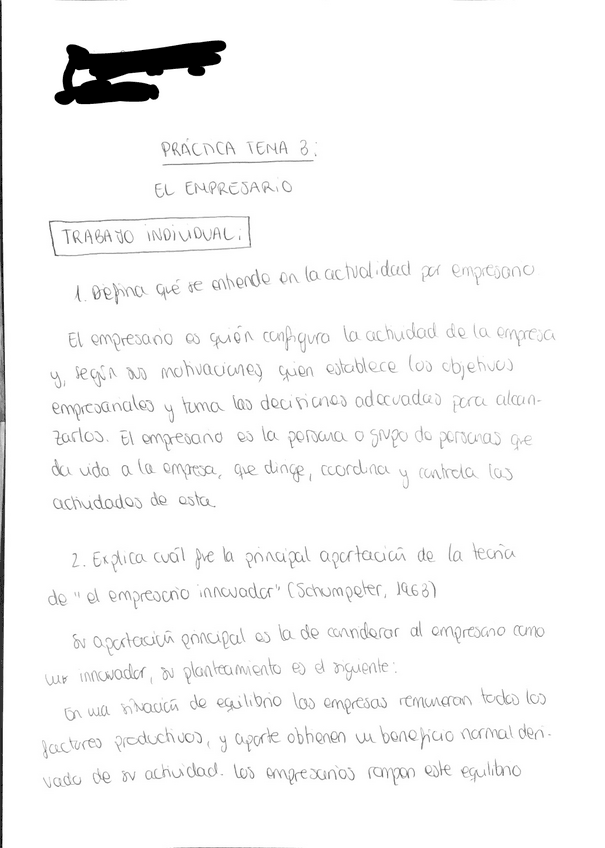 PRÁCTICA TEMA 3:
EL EMPRESARIO
TRABAJO INDIVIDUAL:
1. Defina qué se entiende en la actualidad por empresario
El empresario es quién configura la actividad de la empresa
y, según sus motivaciones, quien establece los objetivos
empresariales y toma las decisiones adecuadas para alcan-
zarlos. El empresario es la persona o grupo de personas que
da vida a la empresa, que dirige, coordina y controla las
actividades de esta.
2. Explica cuál fue la principal aportación de la teoría
de "el empresario innovador" (Schumpeter, 1963)
Su aportación principal es la de considerar al empresario como
un innovador, su planteamiento es el siguiente:
En una situación de equilibrio las empresas remuneran todos los
factores productivos, y aparte obtienen un beneficio normal deri-
vado de su actividad. Los empresarios rompen este equilibrio